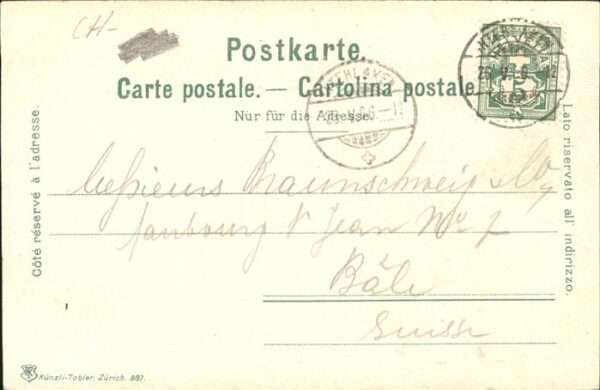 CH-
Postkarte.
Carte postale. — Cartolina postale.
Nur für die Adresse.
Côté réservé à l'adresse.
Lato riservato all' indirizzo.
5
Messieurs Braunschweig & Co,
faubourg St Jean No 7
Bâle
Suisse
Künzli-Tobler, Zürich.